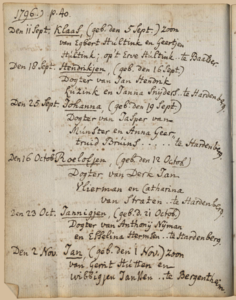 1796.) p. 40.
Den 11 Sept. Klaas, (geb. den 5 Sept.) Zoon
van Egbert Hultink en Geertjen
Hultink, op't Erve Hultink. te Baalder
Den 18 Sept. Hendrikjen, (geb. den 16 Sept)
Dogter van Jan Hendrik
en Janna Snijders. te Hardenberg
Den 25 Sept. Johanna (geb. den 19 Sept)
Dogter van Jasper van
Munster en Anna Geer-
truid Bruins... te Hardenberg
Den 16 Octob. Roelofjen, (geb. den 12 Octob.)
Dogter, van Derk Jan
Vlierman en Catharina
van Straten. te Hardenberg
Den 23 Oct. Jannigjen, (geb. d. 21 Octob)
Dogter van Anthony Nyman
en Effelina Hermsen.. te Hardenberg.
Den 2 Nov. Jan, (geb. den 1 Nov.) Zoon
van Gerrit
en
Wibbigjen Janssen.. te Bergentheim